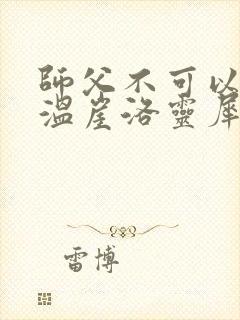 師父不可以
溫崖洛靈犀
雷博